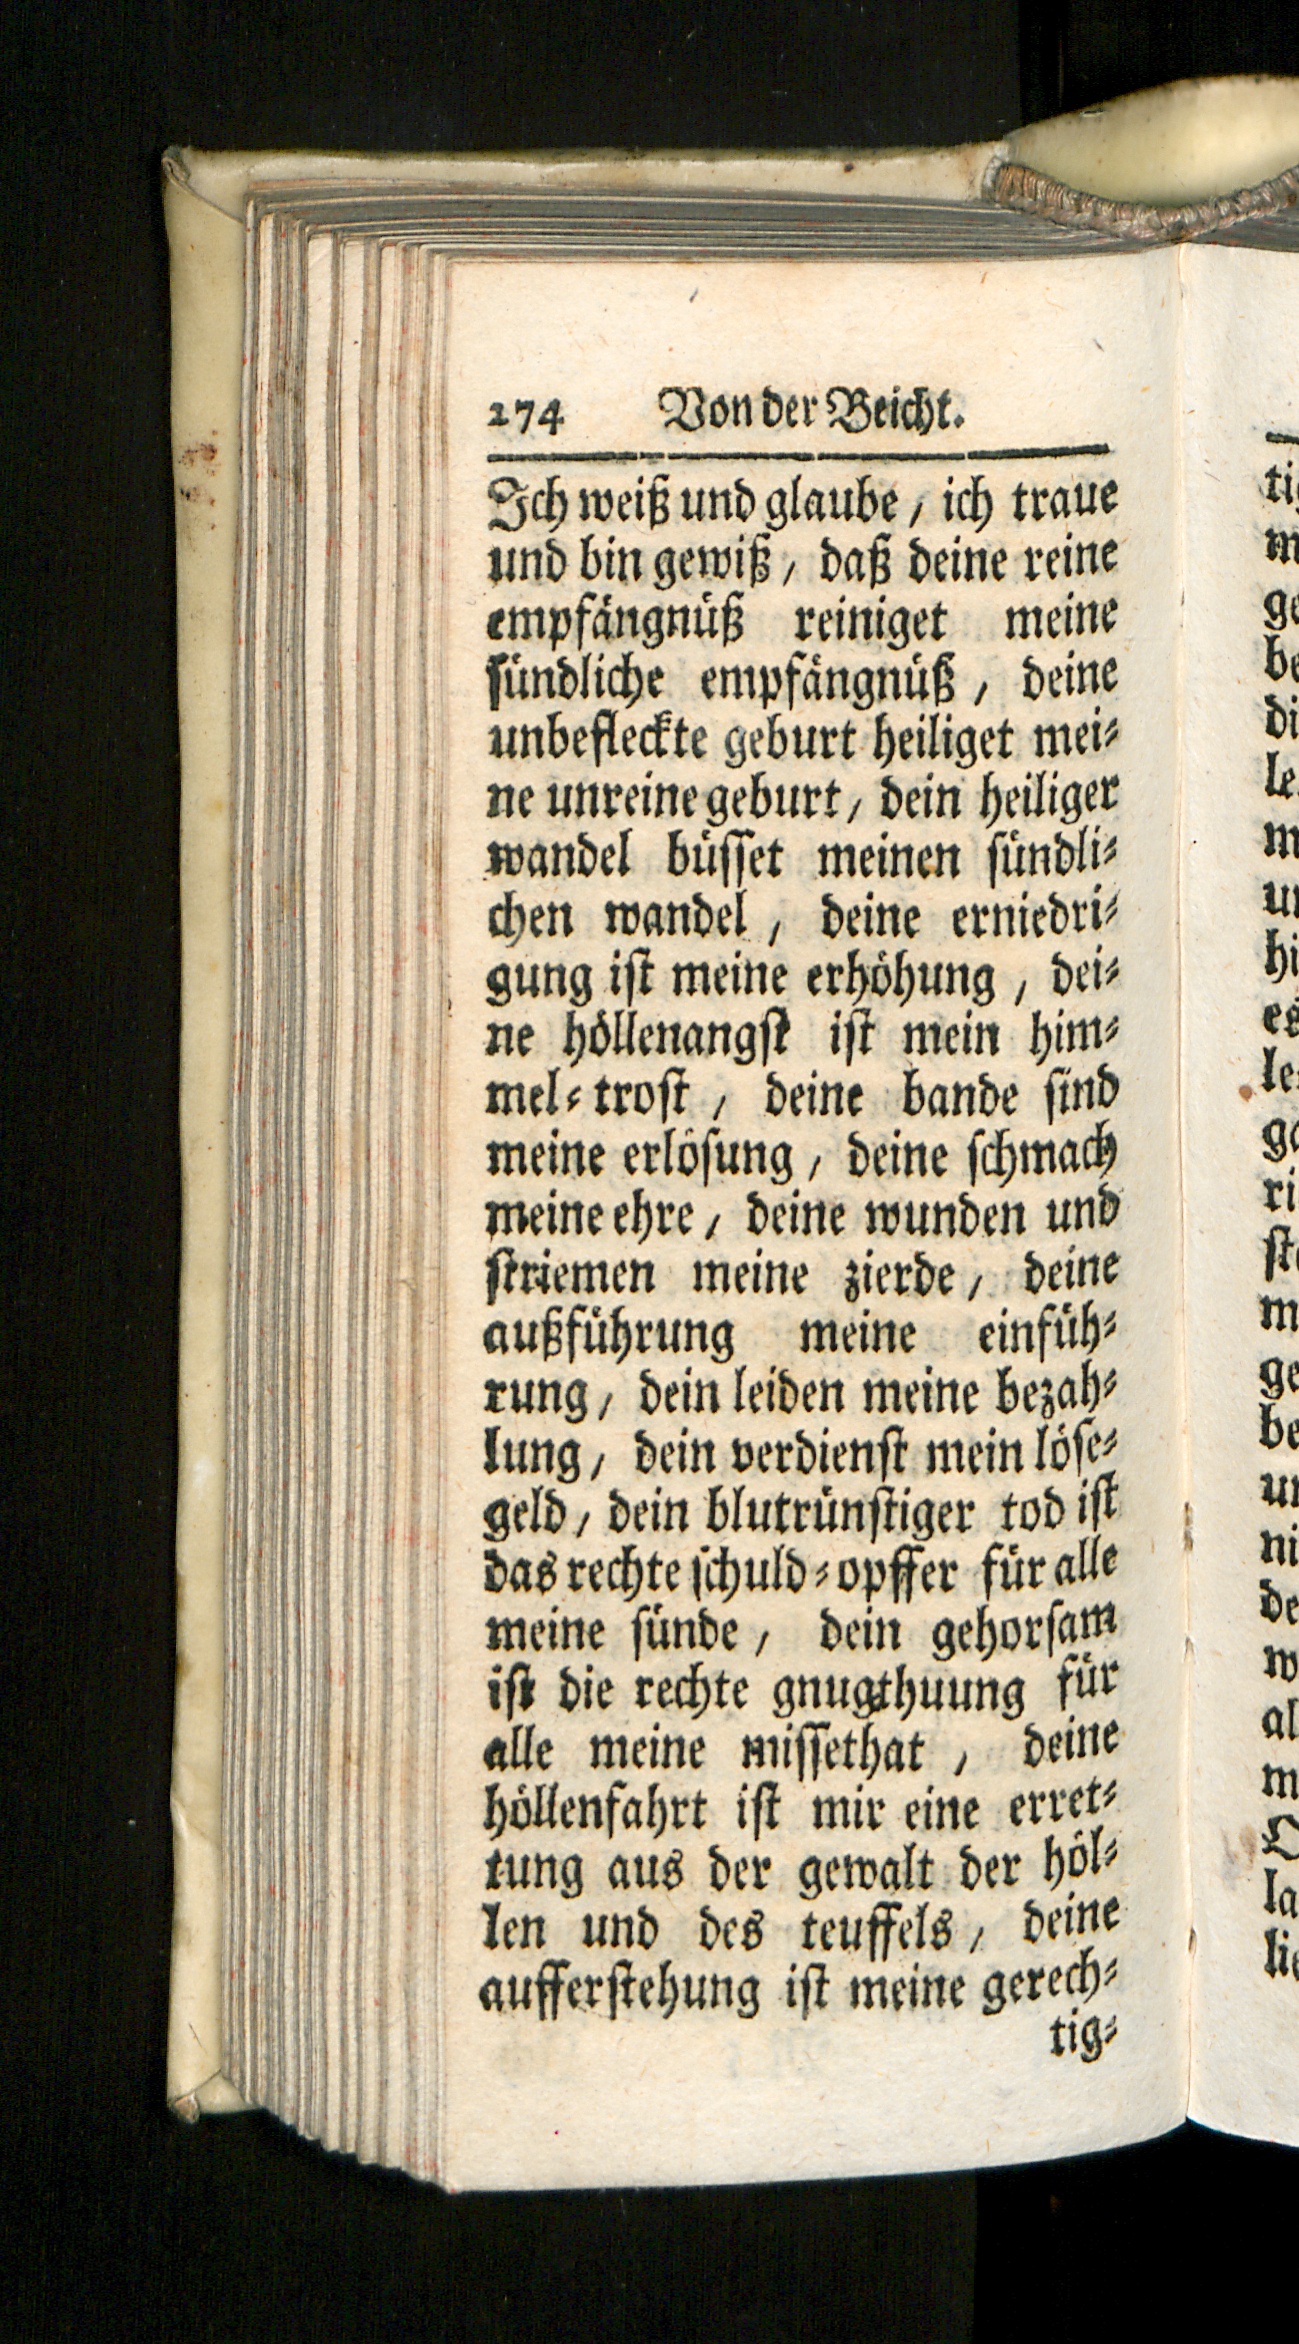 274 Von der Beicht.
Ich weiß und glaube / ich traue
und bin gewiß / daß deine reine
empfängnüß reiniget meine
sündliche empfängnüß / deine
unbefleckte geburt heiliget mei⸗
ne unreine geburt / dein heiliger
wandel büsset meinen sündli⸗
chen wandel / deine erniedri⸗
gung ist meine erhöhung / dei⸗
ne höllenangst ist mein him⸗
mel⸗trost / deine bande sind
meine erlösung / deine schmach
meine ehre / deine wunden und
striemen meine zierde / deine
außführung meine einfüh⸗
rung / dein leiden meine bezah⸗
lung / dein verdienst mein löse⸗
geld / dein blutrünstiger tod ist
das rechte schuld⸗opffer für alle
meine sünde / dein gehorsam
ist die rechte gnugthuung für
alle meine missethat / deine
höllenfahrt ist mir eine erret⸗
tung aus der gewalt der höl⸗
len und des teuffels / deine
aufferstehung ist meine gerech⸗
tig⸗